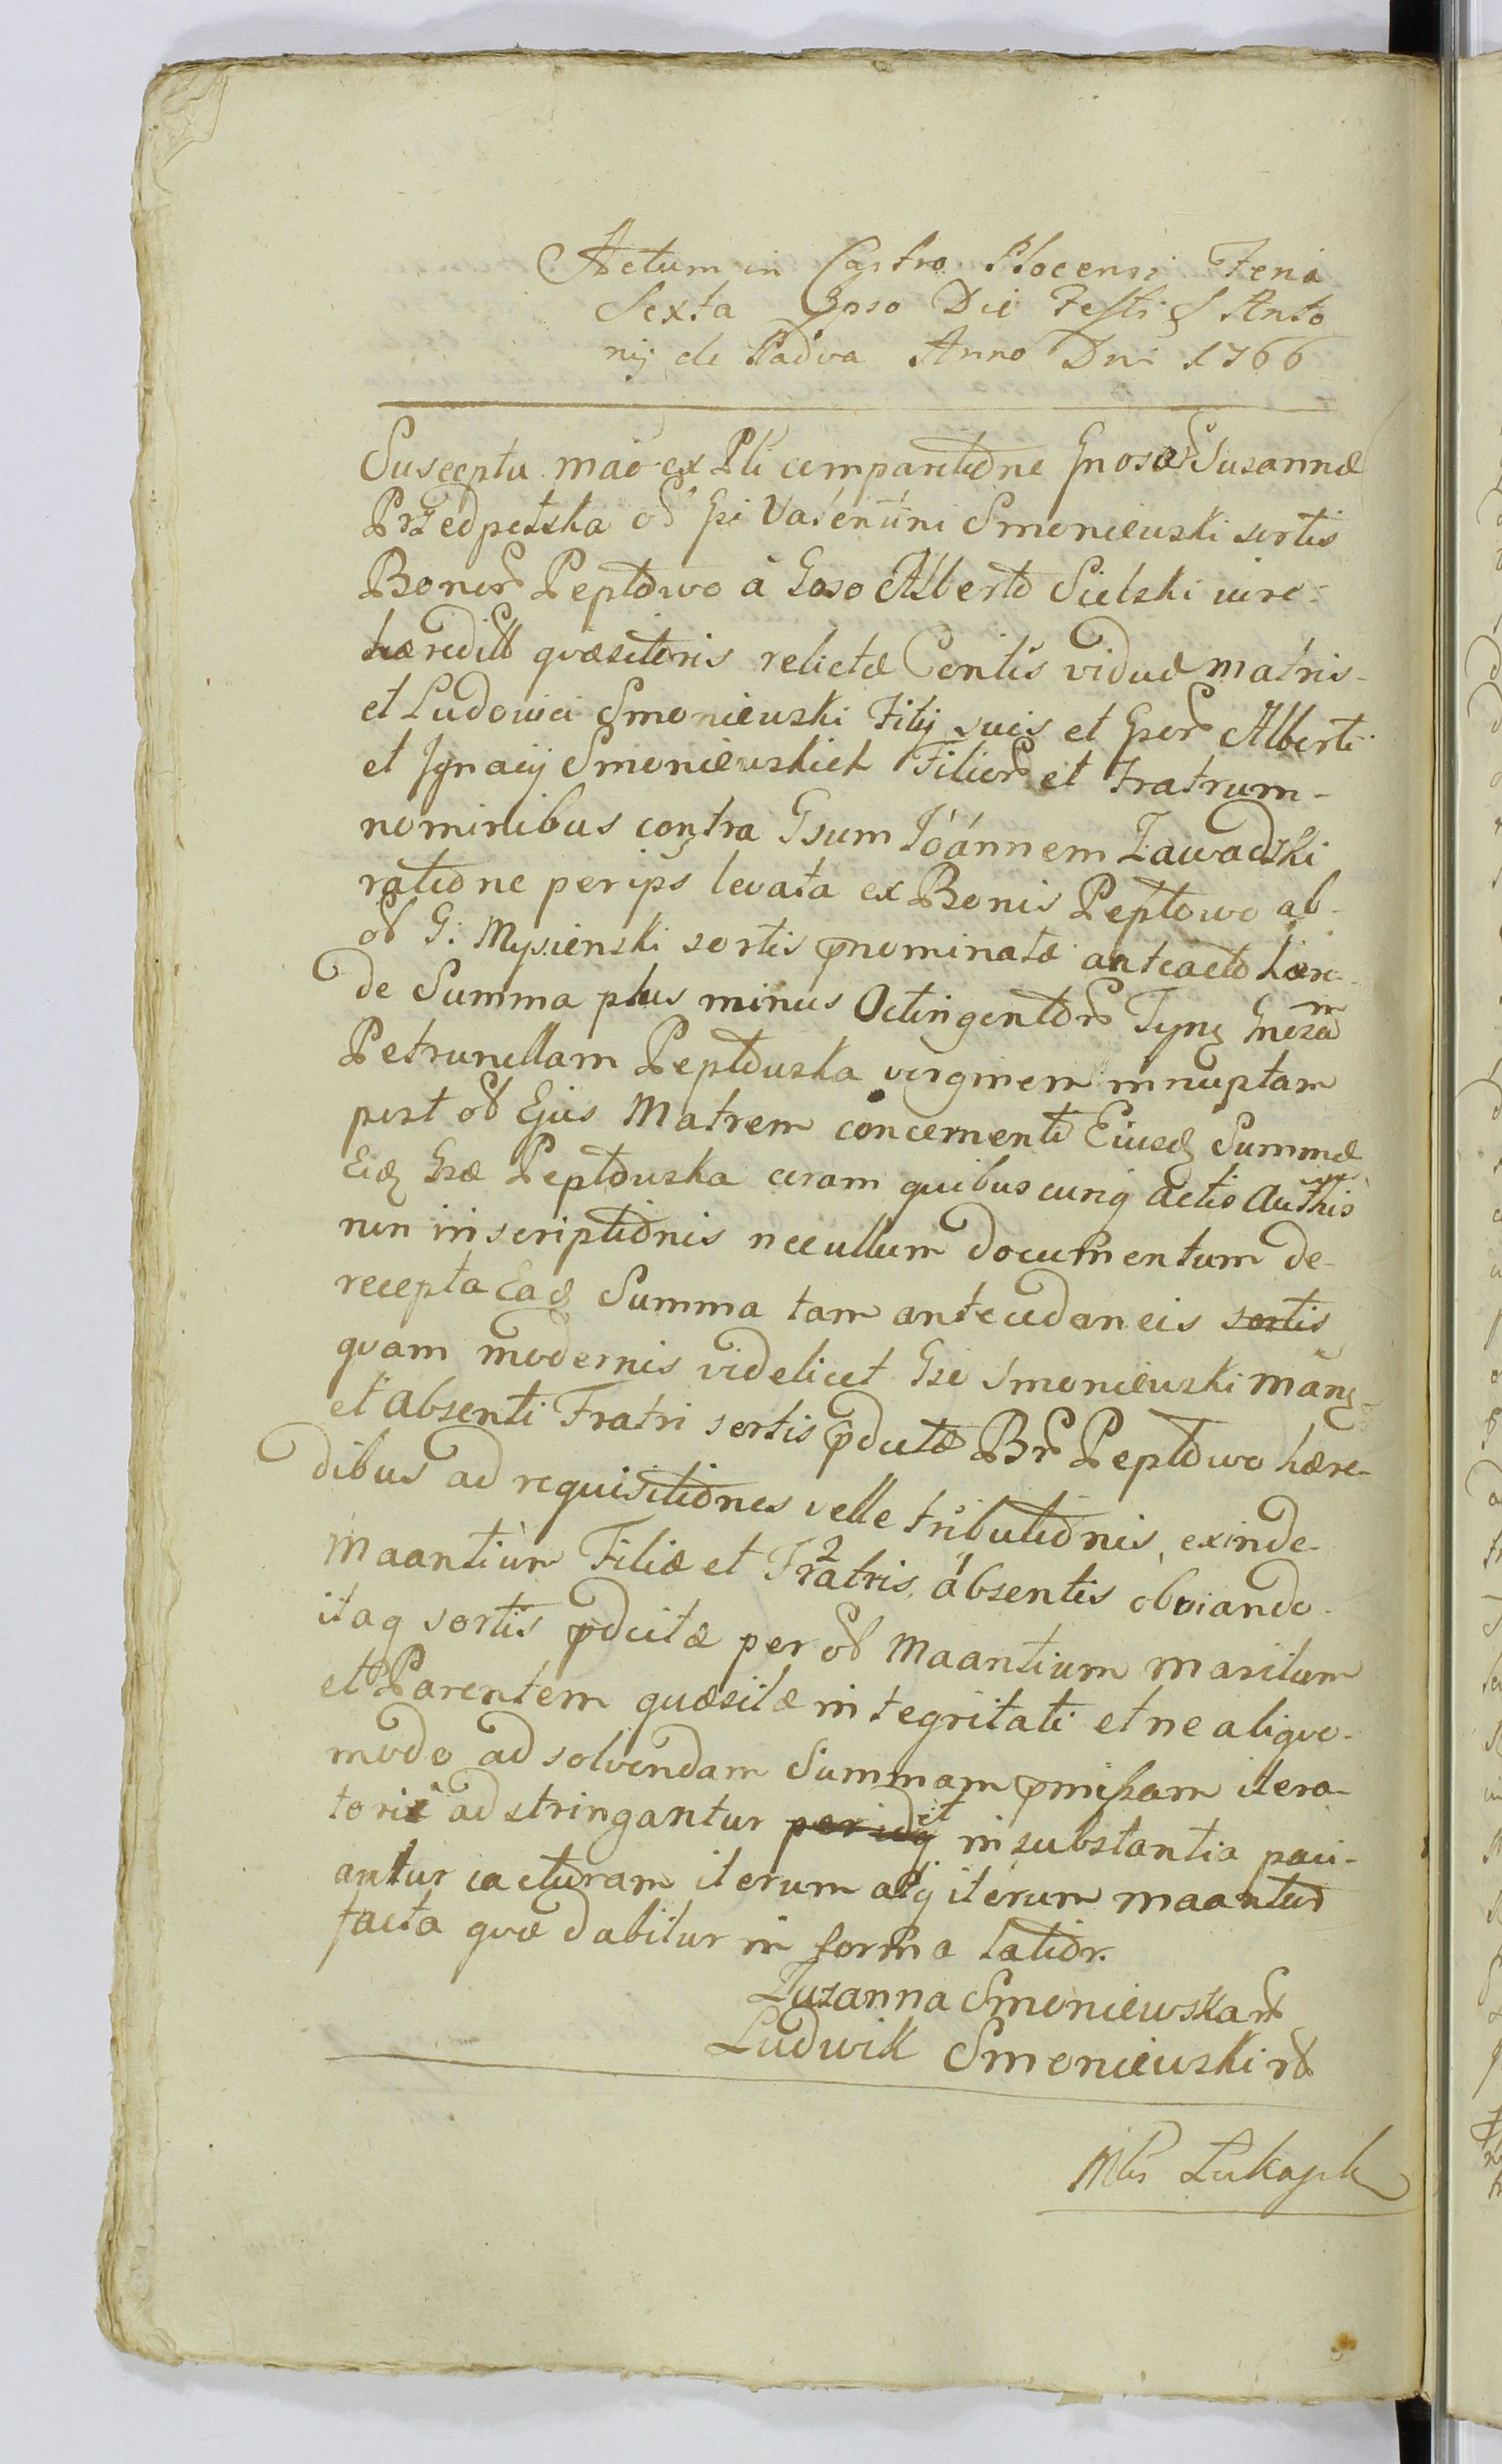 Actum in Castro Plocensi Feria
Sexta Ipso Die Festi S Anto
nij de Padva Anno Dni 1766
Suscepta mao ex Pli comparitione Gnosae Susannae
Przedpetska od Gsi Valentini Smoniewski sortis
Bonor Peptowo à Goso Alberto Sielski viro
haeredill quaesitoris relictae Contis viduae matris
et Ludovici Smoniewski Filij suis et Gsor Alberti
et Jgnacij Smoniewskich Filior et Fratrum
nominibus contra Gsum Ioánnem Zawadzki
ratione per ips levata ex Bonis Peptowo ab
od G: Mysienski sortis pnominatae anteacto haere
de Summa plus minus Octingentor Tynf Gnosam
Petrunellam Peptowska virginem innuptam
post od Ejus Matrem concernenti Eiusq Summae
Eidq Gsae Peptowska coram quibuscunq actis Authis
non inscriptionis nec ullum documentum de
recepta Eaq Summa tam antecedaneis sortis
quam modernis videlicet Gsi Smoniewski man
et absenti Fratri sortis pdictae Br Peptowo haere-
dibus ad requisitiones velle tributionis, exinde
Maantium Filiae et Fratris absentis obviando
itaq sortis pdictae per od Maantium maritum
et Parentem quaesitae integritati et ne aliquo
modo ad solvendam Summam pmissam itera-
torie adstringantur et in substantia paci-
antur iacturam iterum atq iterum maantur
facta quae dabitur in forma latior.
Zuzanna Smoniewska
Ludwik Smoniewski
Mls